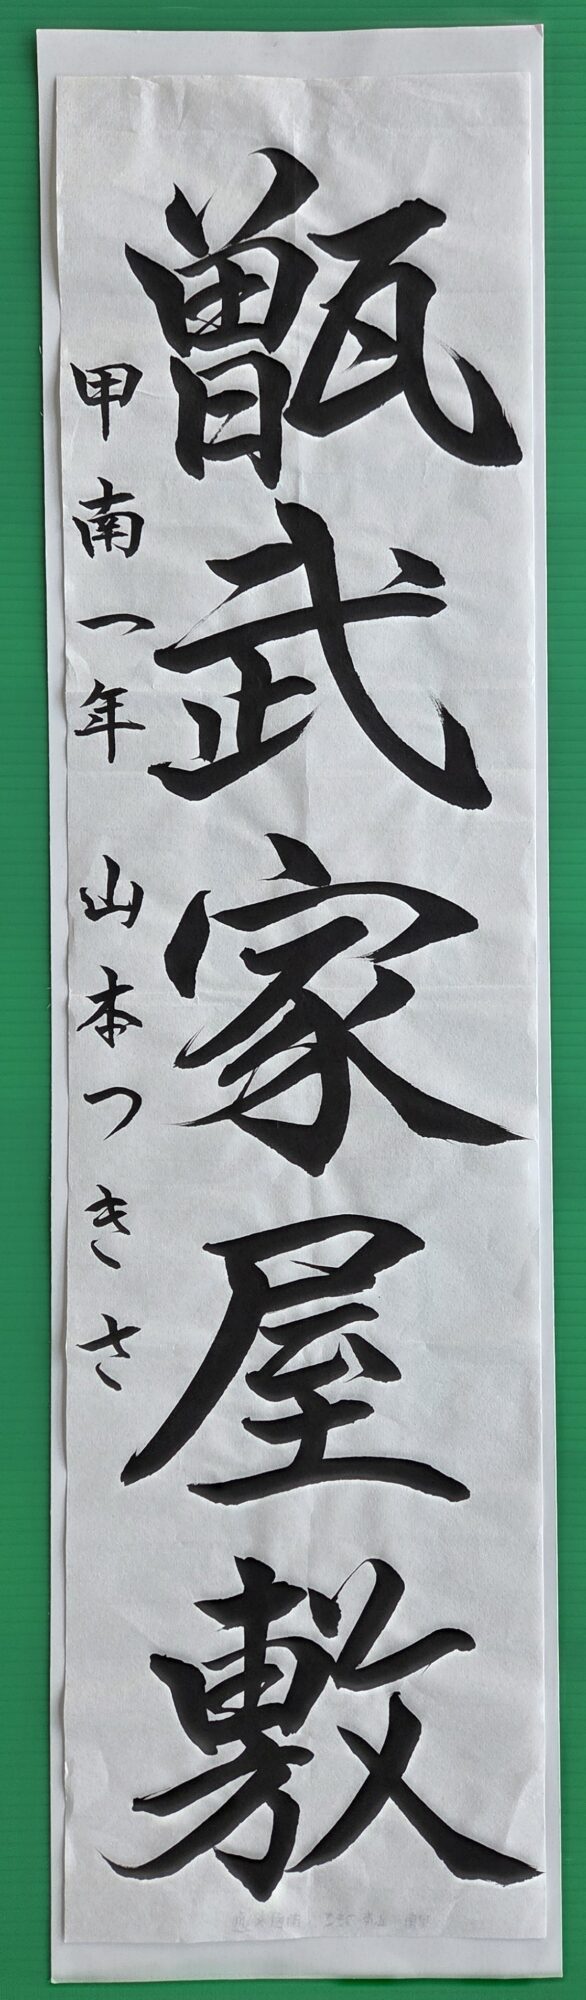 甑武家屋敷
甲南一年 山本つきさ